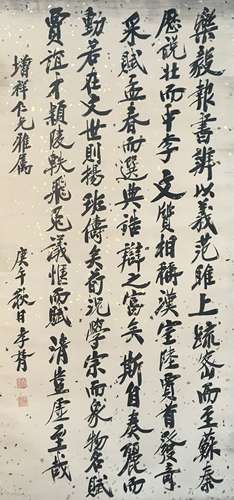 樂毅報書辨以義范雎上疏密而至蘇秦
歷說壯而中李文質相稱漢室陸賈首發奇
采賦孟春而選典誥辯之富矣斯自奏麗而
動若在文世則揚班儔矣荀況學宗而象物名賦
賈誼才穎陵軼飛兔議愜而賦清豈虛至哉
增祥仁兄雅屬
庚午秋日李